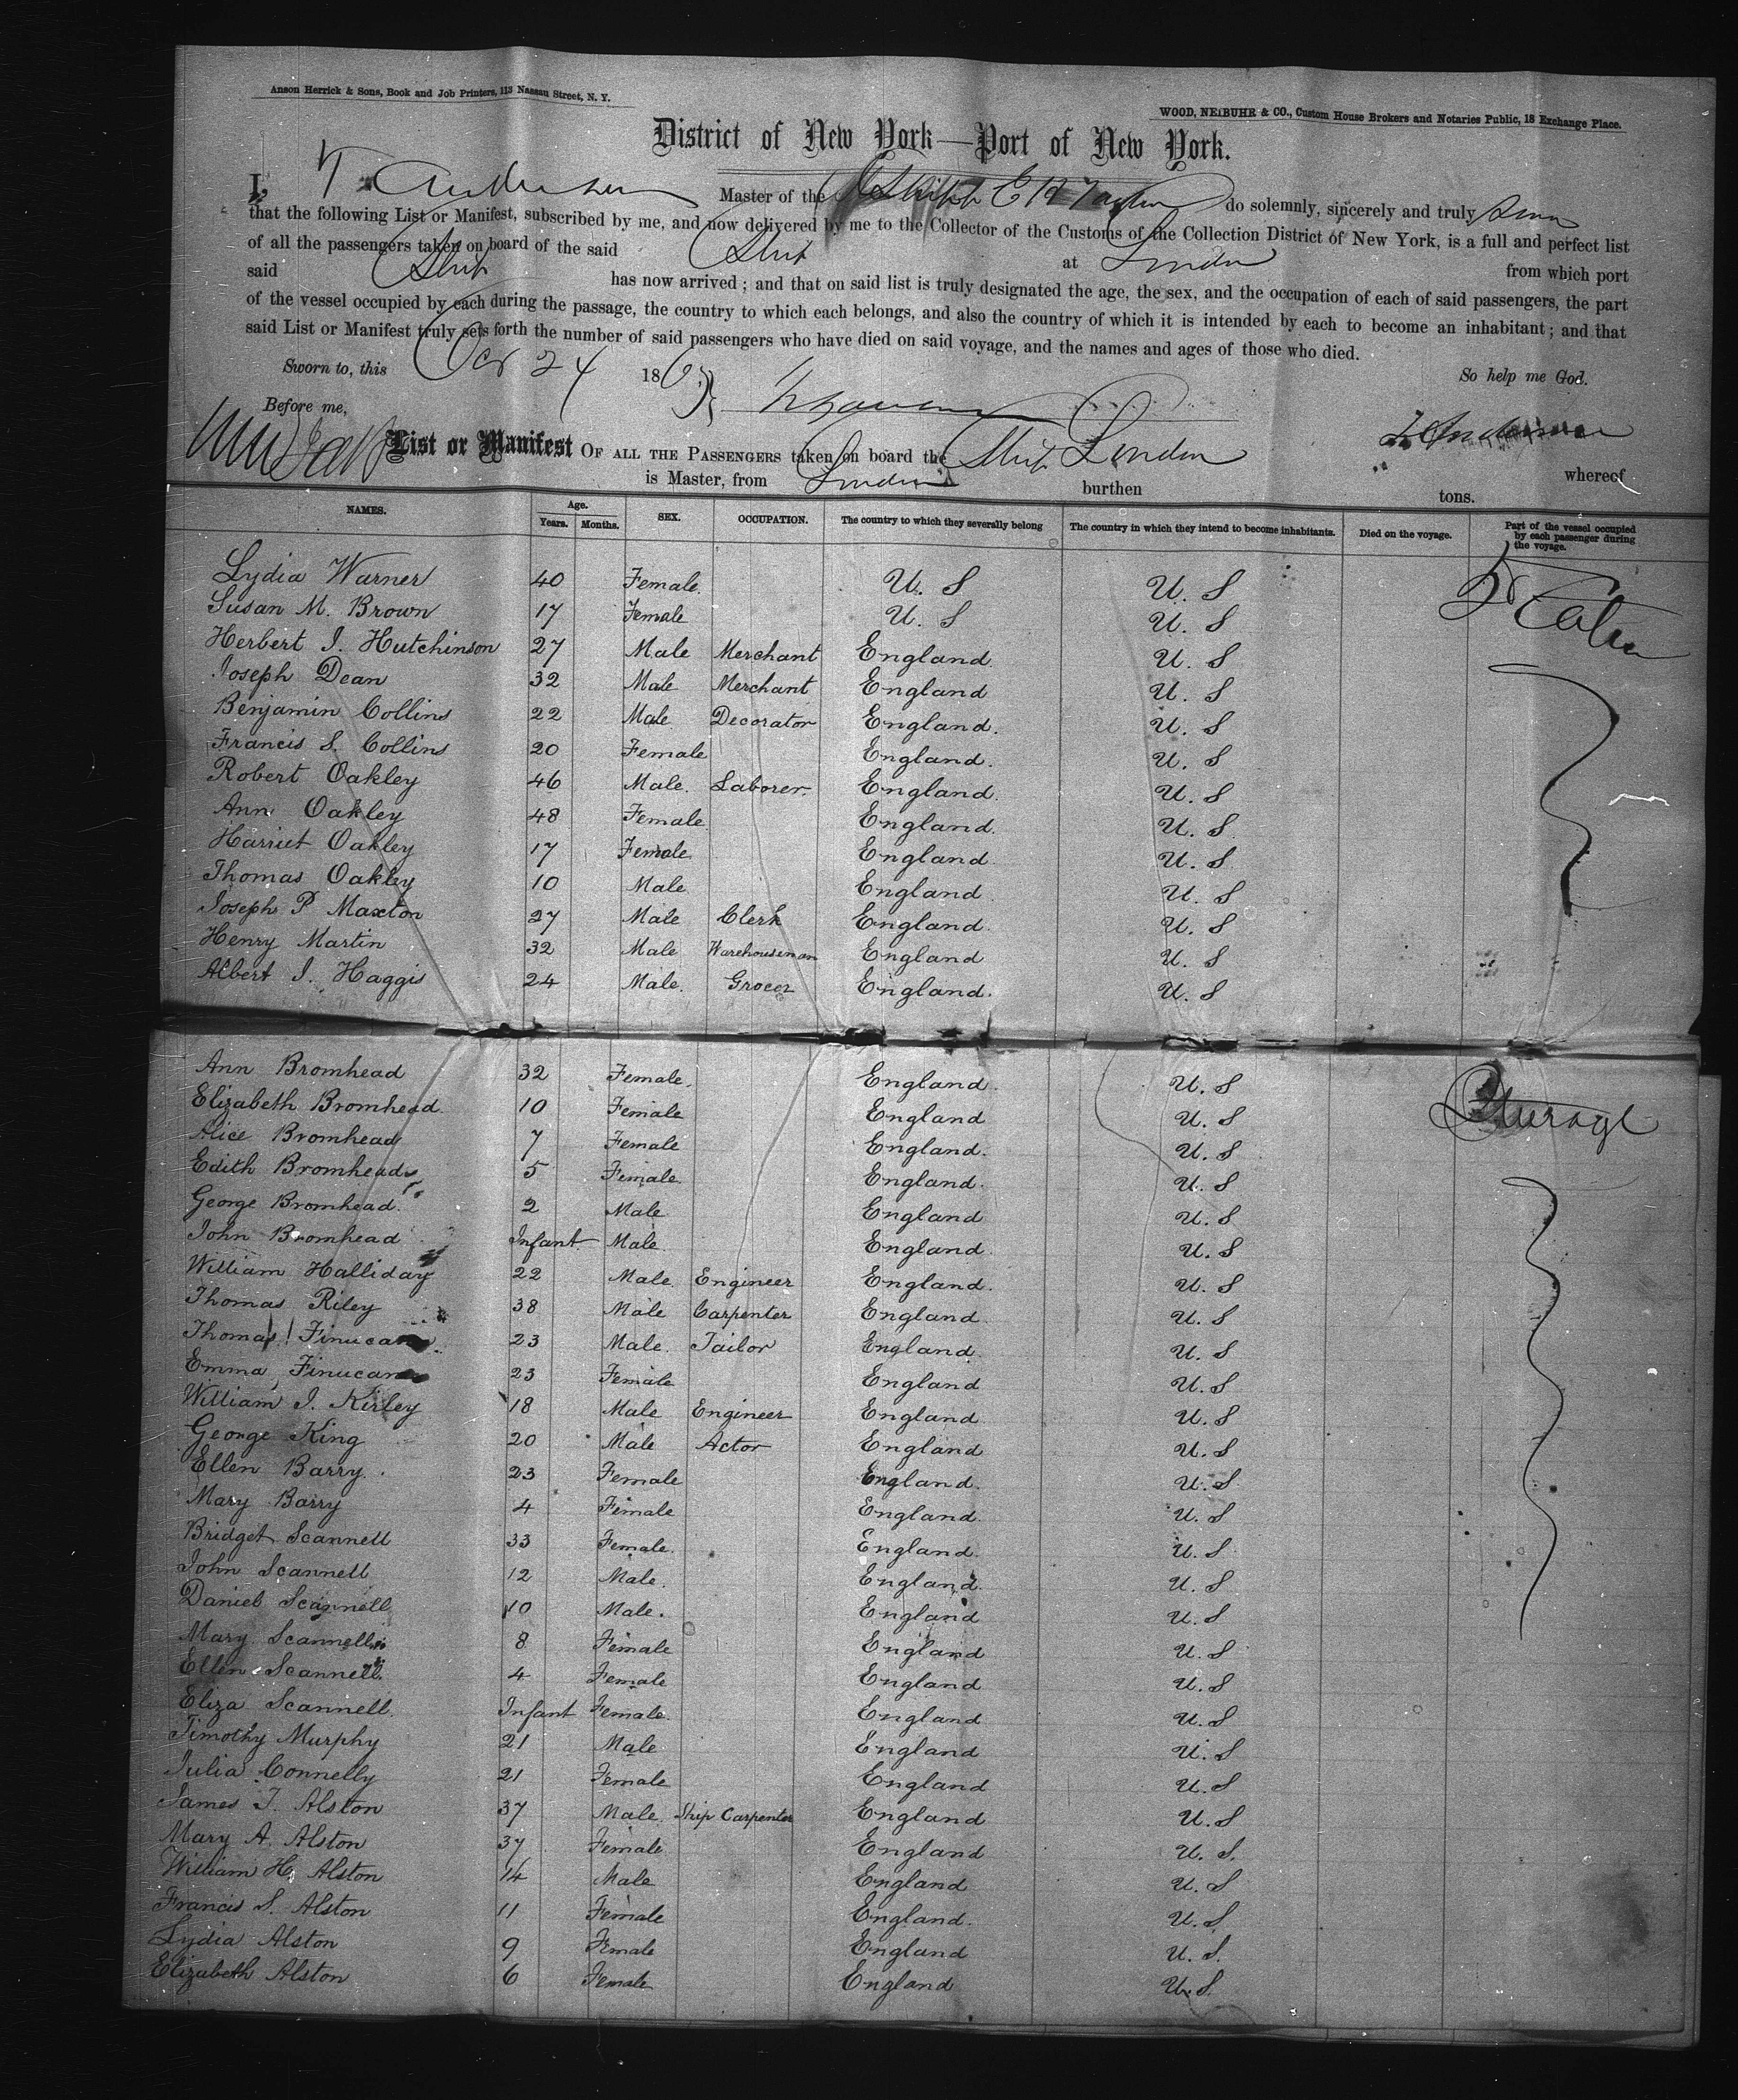 Anson Herrick & Sons, Book and Job Printers, 113 Nassau Street, N. Y.
WOOD, NEIBUHR & CO., Custom House Brokers and Notaries Public, 18 Exchange Place.
District of New York—Port of New York.
I, Anderson Master of the do solemnly, sincerely and truly
that the following List or Manifest, subscribed by me, and now delivered by me to the Collector of the Customs of the Collection District of New York, is a full and perfect list
of all the passengers taken on board of the said Ship at London from which port
said Ship has now arrived; and that on said list is truly designated the age, the sex, and the occupation of each of said passengers, the part
of the vessel occupied by each during the passage, the country to which each belongs, and also the country of which it is intended by each to become an inhabitant; and that
said List or Manifest truly sets forth the number of said passengers who have died on said voyage, and the names and ages of those who died.
Sworn to, this Oct 24 186 So help me God.
Before me,
List or Manifest OF ALL THE PASSENGERS taken on board the Ship London whereof
is Master, from London burthen tons.
NAMES. Age. Years. Months. SEX. OCCUPATION. The country to which they severally belong The country in which they intend to become inhabitants. Died on the voyage. Part of the vessel occupied by each passenger during the voyage.
Lydia Warner 40 Female. U. S U. S
Susan M. Brown 17 Female U. S U. S
Herbert J. Hutchinson 27 Male Merchant England. U. S
Joseph Dean 32 Male Merchant England U. S
Benjamin Collins 22 Male Decorator England. U. S
Francis S. Collins 20 Female England. U. S
Robert Oakley 46 Male. Laborer. England. U. S
Ann Oakley 48 Female. England. U. S
Harriet Oakley 17 Female England. U. S
Thomas Oakley 10 Male England. U. S
Joseph P Maxton 27 Male Clerk England. U. S
Henry Martin 32 Male Warehouseman England U. S
Albert J. Haggis 24 Male. Grocer England. U. S
Ann Bromhead 32 Female. England. U. S Steerage
Elizabeth Bromhead 10 Female England U. S
Alice Bromhead 7 Female England. U. S
Edith Bromhead 5 Female England. U. S
George Bromhead. 2 Male England U. S
John Bromhead Infant Male England. U. S
William Halliday 22 Male Engineer England. U. S
Thomas Riley 38 Male Carpenter England. U. S
Thomas Finucane 23 Male. Tailor England. U. S
Emma Finucane 23 Female England U. S
William J. Kirley 18 Male Engineer England U. S
George King 20 Male Actor England U. S
Ellen Barry 23 Female England. U. S
Mary Barry 4 Female England. U. S
Bridget Scannell 33 Female. England. U. S
John Scannell 12 Male. England. U. S
Daniel Scannell 10 Male. England U. S
Mary Scannell 8 Female England U. S
Ellen Scannell 4 Female England U. S
Eliza Scannell. Infant Female. England U. S
Timothy Murphy 21 Male England U. S
Julia Connelly 21 Female England U. S
James T. Alston 37 Male. Ship Carpenter England U. S
Mary A. Alston 37 Female England U. S.
William H. Alston 14 Male England U. S
Francis S. Alston 11 Female England. U. S
Lydia Alston 9 Female England U. S.
Elizabeth Alston 6 Female England U. S.